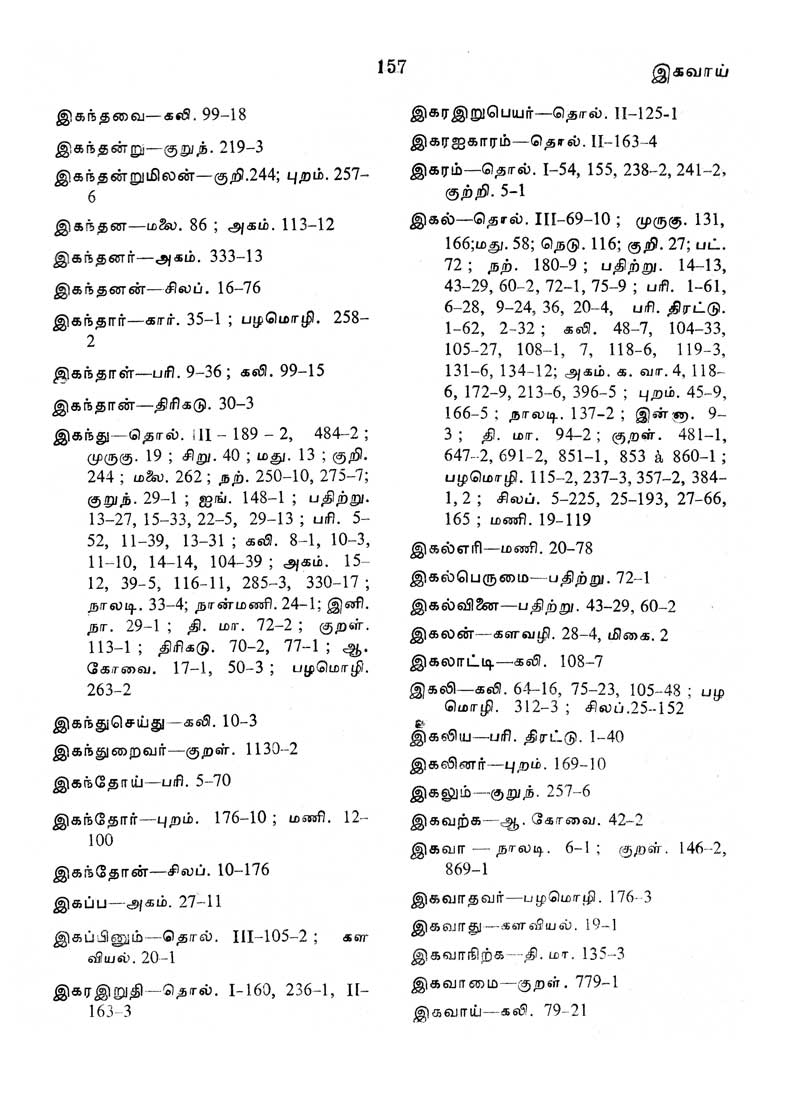 157
இகவாய்
இகந்தவை—கலி. 99-18
இகந்தன்று—குறுந். 219-3
இகந்தன்றுமிலன்—குறி.244; புறம். 257-
6
இகந்தன—மலை. 86 ; அகம். 113-12
இகந்தனர்—அகம். 333-13
இகந்தனன்—சிலப். 16-76
இகந்தார்—கார். 35-1 ; பழமொழி. 258-
2
இகந்தாள்—பரி. 9-36 ; கலி. 99-15
இகந்தான்—திரிகடு. 30-3
இகந்து—தொல். III - 189 - 2, 484-2 ;
முருகு. 19 ; சிறு. 40 ; மது. 13 ; குறி.
244 ; மலை. 262 ; நற். 250-10, 275-7;
குறுந். 29-1 ; ஐங். 148-1 ; பதிற்று.
13-27, 15-33, 22-5, 29-13 ; பரி. 5-
52, 11-39, 13-31 ; கலி. 8-1, 10-3,
11-10, 14-14, 104-39 ; அகம். 15-
12, 39-5, 116-11, 285-3, 330-17 ;
நாலடி. 33-4; நான்மணி. 24-1; இனி.
நா. 29-1 ; தி. மா. 72-2 ; குறள்.
113-1 ; திரிகடு. 70-2, 77-1 ; ஆ.
கோவை. 17-1, 50-3 ; பழமொழி.
263-2
இகந்துசெய்து—கலி. 10-3
இகந்துறைவர்—குறள். 1130-2
இகந்தோய்—பரி. 5-70
இகந்தோர்—புறம். 176-10 ; மணி. 12-
100
இகந்தோன்—சிலப். 10-176
இகப்ப—அகம். 27-11
இகப்பினும்—தொல். III-105-2 ; கள
வியல். 20-1
இகரஇறுதி—தொல். I-160, 236-1, II-
163-3
இகரஇறுபெயர்—தொல். II-125-1
இகரஐகாரம்—தொல். II-163-4
இகரம்—தொல். I-54, 155, 238-2, 241-2,
குற்றி. 5-1
இகல்—தொல். III-69-10 ; முருகு. 131,
166;மது. 58; நெடு. 116; குறி. 27; பட்.
72 ; நற். 180-9 ; பதிற்று. 14-13,
43-29, 60-2, 72-1, 75-9 ; பரி. 1-61,
6-28, 9-24, 36, 20-4, பரி. திரட்டு.
1-62, 2-32 ; கலி. 48-7, 104-33,
105-27, 108-1, 7, 118-6, 119-3,
131-6, 134-12; அகம். க. வா. 4, 118-
6, 172-9, 213-6, 396-5 ; புறம். 45-9,
166-5 ; நாலடி. 137-2 ; இன்னா. 9-
3 ; தி. மா. 94-2 ; குறள். 481-1,
647-2, 691-2, 851-1, 853 à 860-1 ;
பழமொழி. 115-2, 237-3, 357-2, 384-
1, 2 ; சிலப். 5-225, 25-193, 27-66,
165 ; மணி. 19-119
இகல்எரி—மணி. 20-78
இகல்பெருமை—பதிற்று. 72-1
இகல்வினை—பதிற்று. 43-29, 60-2
இகலன்—களவழி. 28-4, மிகை. 2
இகலாட்டி—கலி. 108-7
இகலி—கலி. 64-16, 75-23, 105-48 ; பழ
மொழி. 312-3 ; சிலப்.25-152
இகலிய—பரி. திரட்டு. 1-40
இகலினர்—புறம். 169-10
இகலும்—குறுந். 257-6
இகவற்க—ஆ. கோவை. 42-2
இகவா — நாலடி. 6-1 ; குறள். 146-2,
869-1
இகவாதவர்—பழமொழி. 176-3
இகவாது—களவியல். 19-1
இகவாநிற்க—தி. மா. 135-3
இகவாமை—குறள். 779-1
இகவாய்—கலி. 79-21